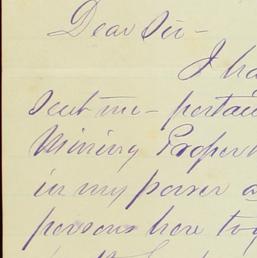 Dear Sir -
I ha
Sent me - pertai
Mining Proper
in my power a
persons here to